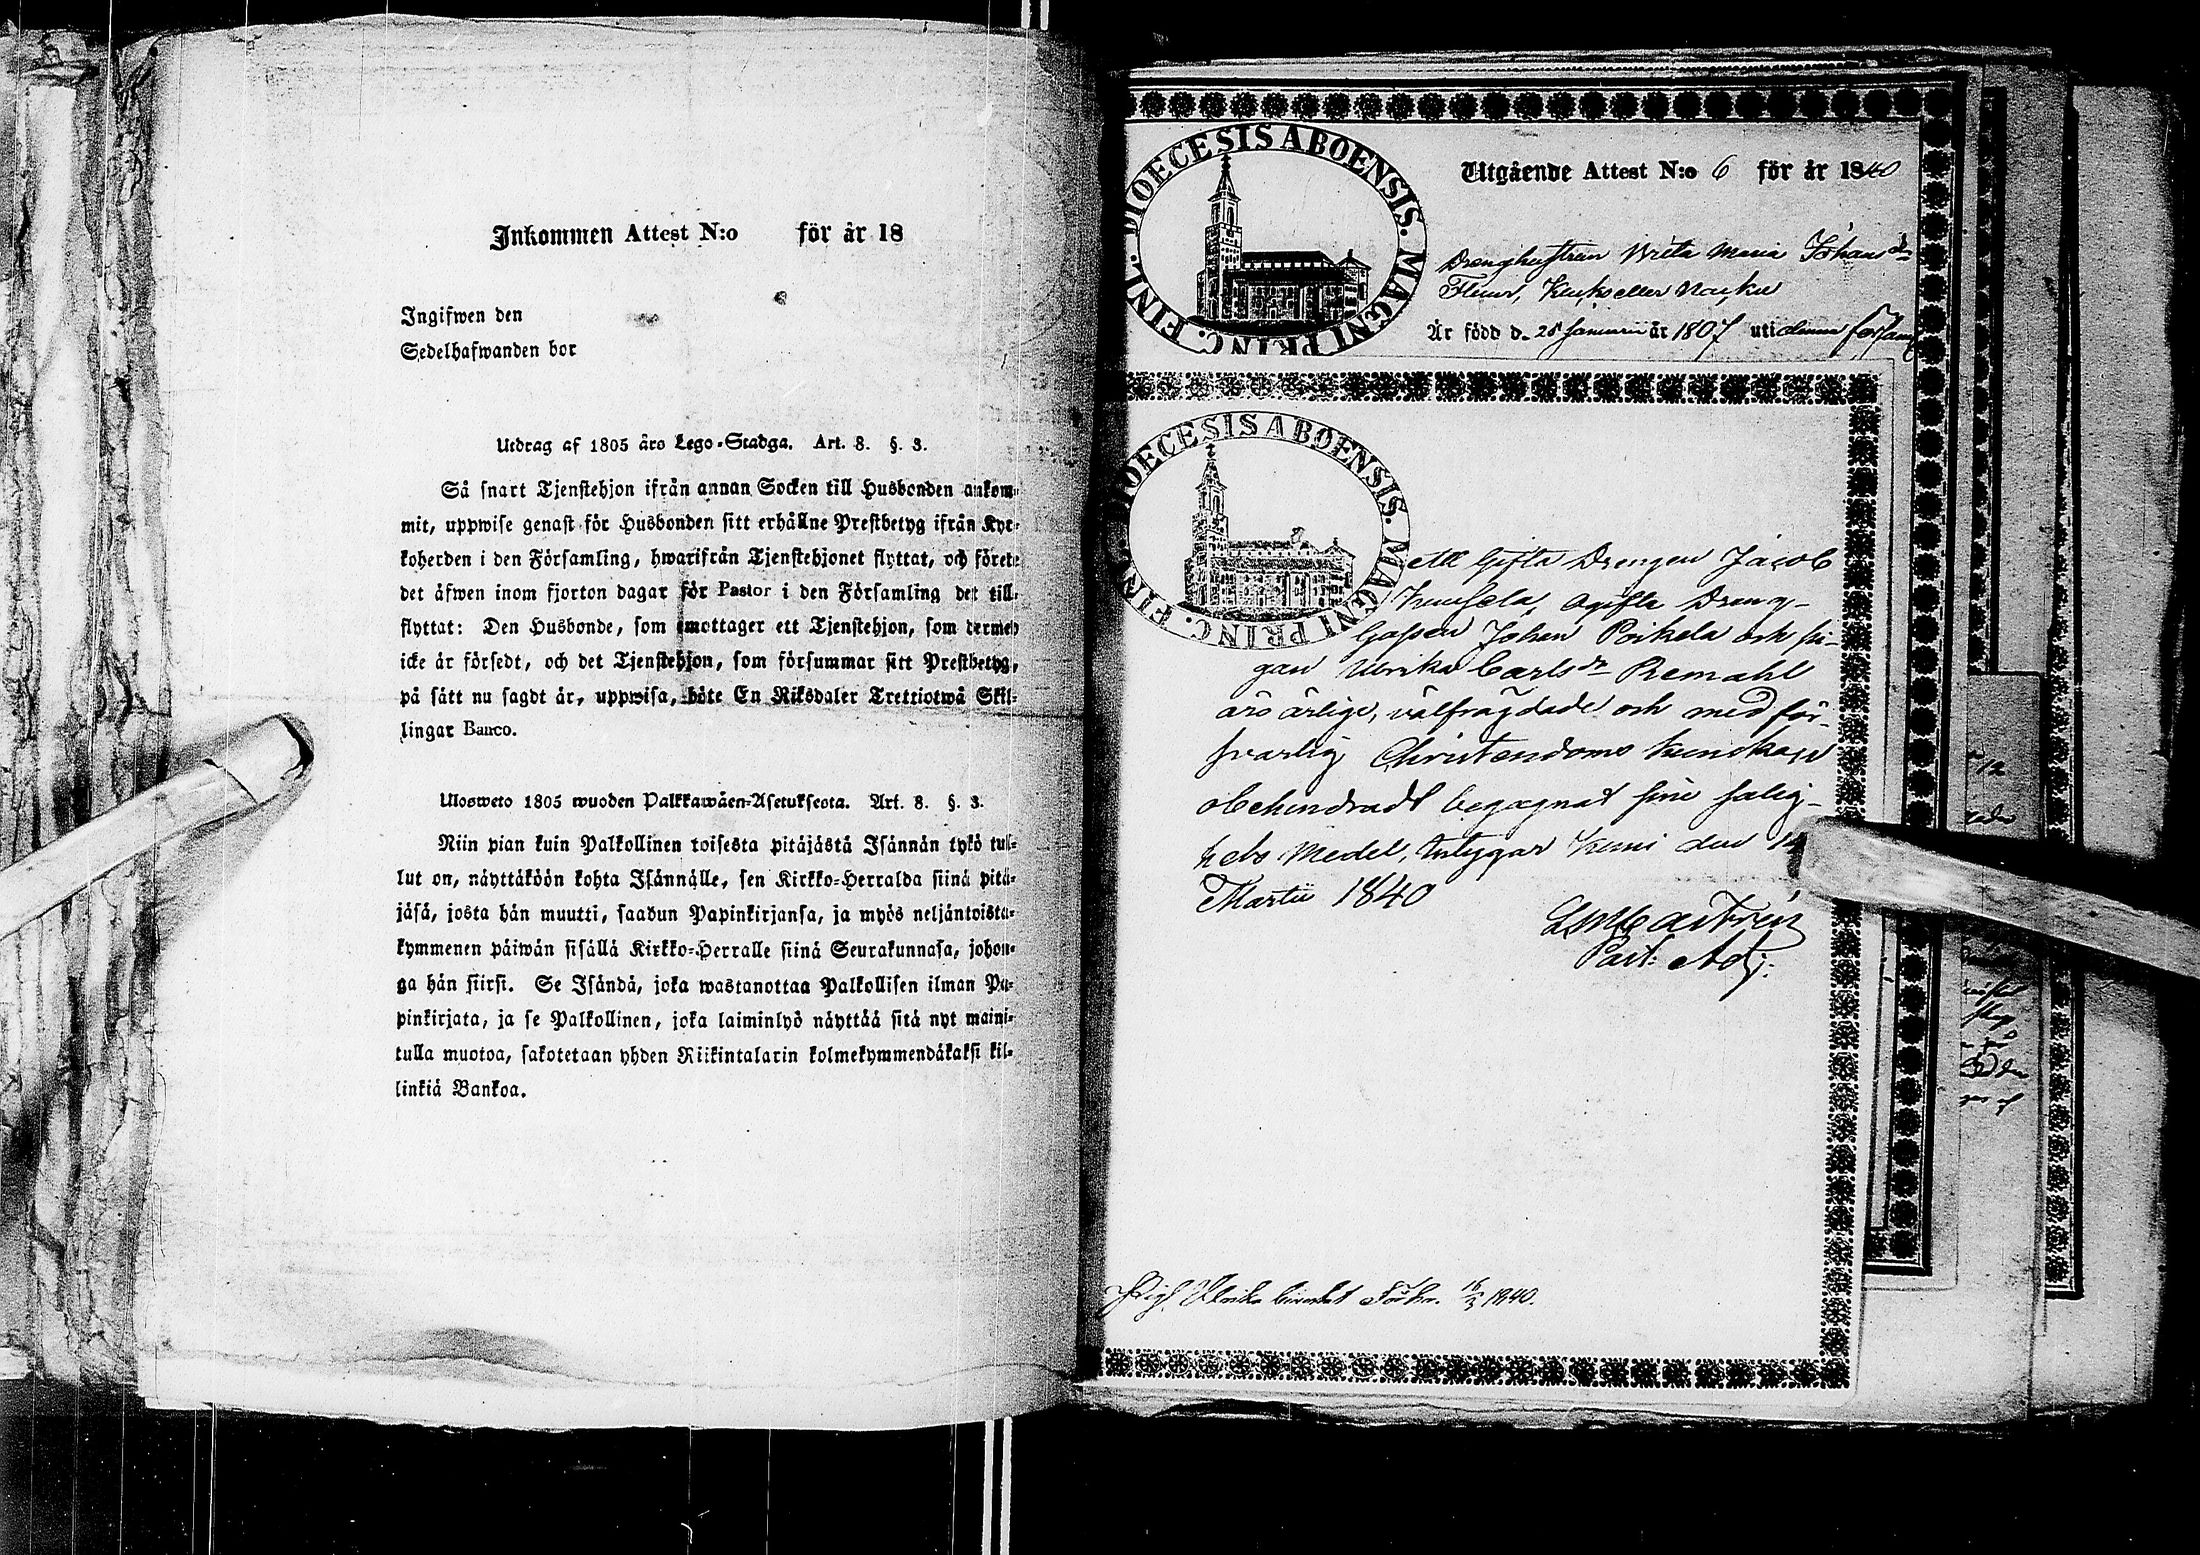 Inkommen Attest N:o för år 18
Ingifwen den
Sedelhafwanden bor
Utdrag af 1805 års Lego-Stadga. Art. 8. §. 3.
Så snart Tjenstehjon ifrån annan Socken till Husbonden ankom-
mit, uppwise genast för Husbonden sitt erhållne Prestbetyg ifrån Kyr-
koherden i den Församling, hwarifrån Tjenstehjonet flyttat, och förete
det äfwen inom fjorton dagar för Pastor i den Församling det till-
flyttat: Den Husbonde, som emottager ett Tjenstehjon, som dermed
icke är försedt, och det Tjenstehjon, som försummar sitt Prestbetyg,
på sätt nu sagdt är, uppwisa, böte En Riksdaler Trettiotwå Skil-
lingar Banco.
Ulosweto 1805 wuoden Palkkawäen-Asetuksesta. Art. 8. §. 3.
Niin pian kuin Palkollinen toisesta pitäjästä Isännän tykö tul-
lut on, näyttäköön kohta Isännälle, sen Kirkko-Herralda siinä pitä-
jäsä, josta hän muutti, saadun Papinkirjansa, ja myös neljäntoista-
kymmenen päiwän sisällä Kirkko-Herralle siinä Seurakunnasa, johon-
ga hän siirsi. Se Isändä, joka wastanottaa Palkollisen ilman Pa-
pinkirjata, ja se Palkollinen, joka laiminlyö näyttää sitä nyt maini-
tulla muotoa, sakotetaan yhden Riikintalarin kolmekymmendäkaksi kil-
linkiä Bankoa.
DIOECESIS ABOENSIS. MAGNI PRINC. FINL.
Utgående Attest N:o 6 för år 1840
Drenghustrun Brita Maria Johansdr
Är född d. 25 Januarii år 1807 uti denna Förssaml
DIOECESIS ABOENSIS. MAGNI PRINC. FIN
Att Gifta Drengen Jacob
Kuusela, ogifta Dreng-
Gossen Johan Poikela och pi-
gan Ulrika Carlsdr Remahl
äro ärlige, välfrägdade och med för-
svarlig Christendoms kundskap
obehindradt begagnat sine salig-
hets Medel, intygar Kumi den 14
Martii 1840
Castrén
Past: Adj:
Pig. Ulrika 16/3 1840.